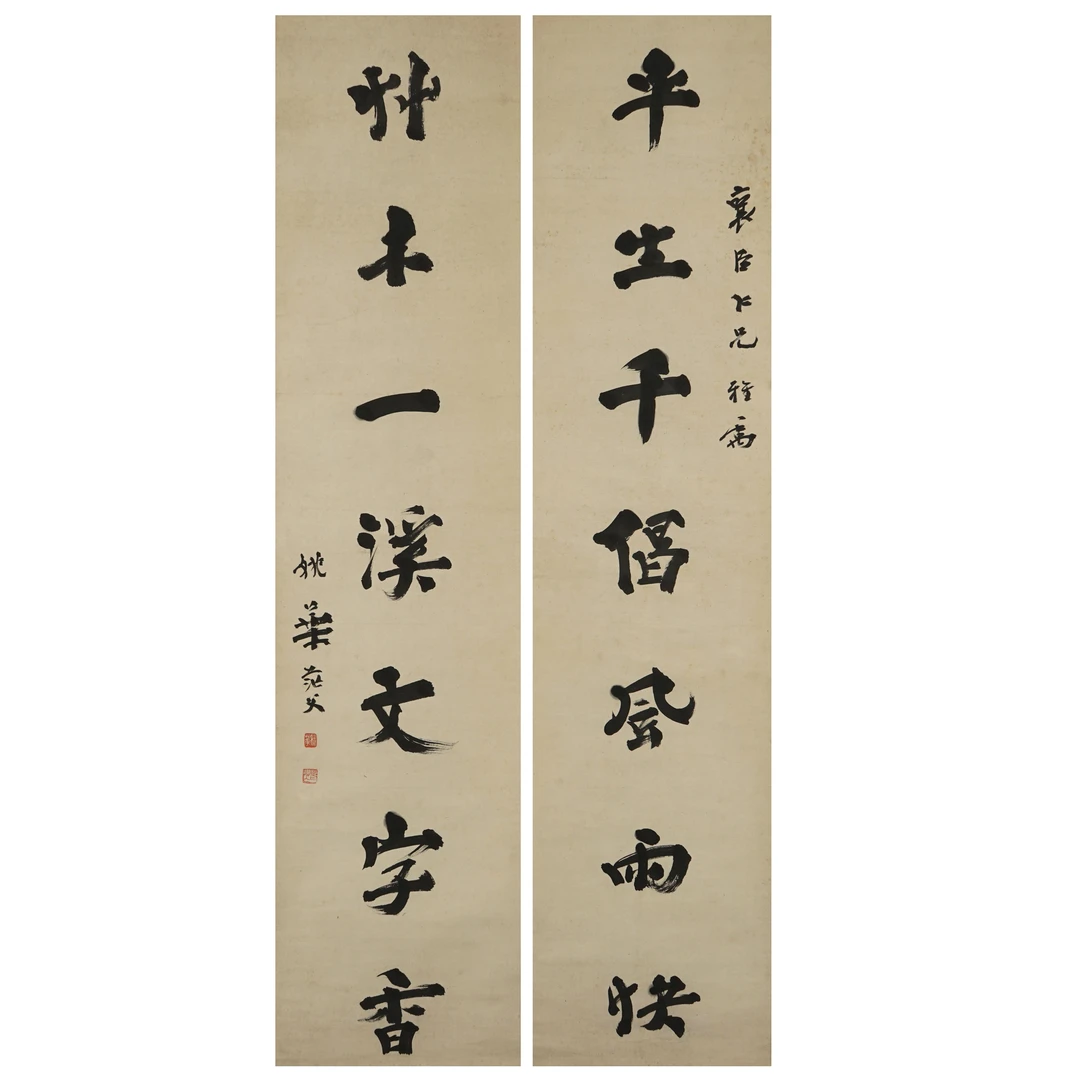 襄臣仁兄 雅屬
平生千偈風雨快
艸木一溪文字香
姚華茫父